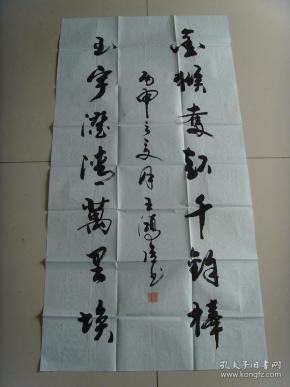 金猴奮起千鈞棒
丙申之夏月王鴻书
玉宇澄清萬里埃
孔夫子旧书网